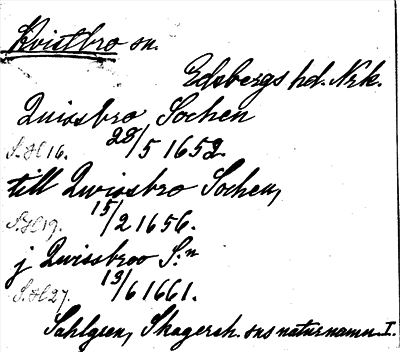 Kvistbro sn.
Edsbergs hd. Nrk.
Quissbro Sochen
S.H 16. 28/5 1652
till Qwissbro Sochen,
S.H 19. 15/2 1656.
j Qwissbroo S:n
S.H 27. 13/6 1661.
Sahlgren, Skagersh. sns naturnamn I.